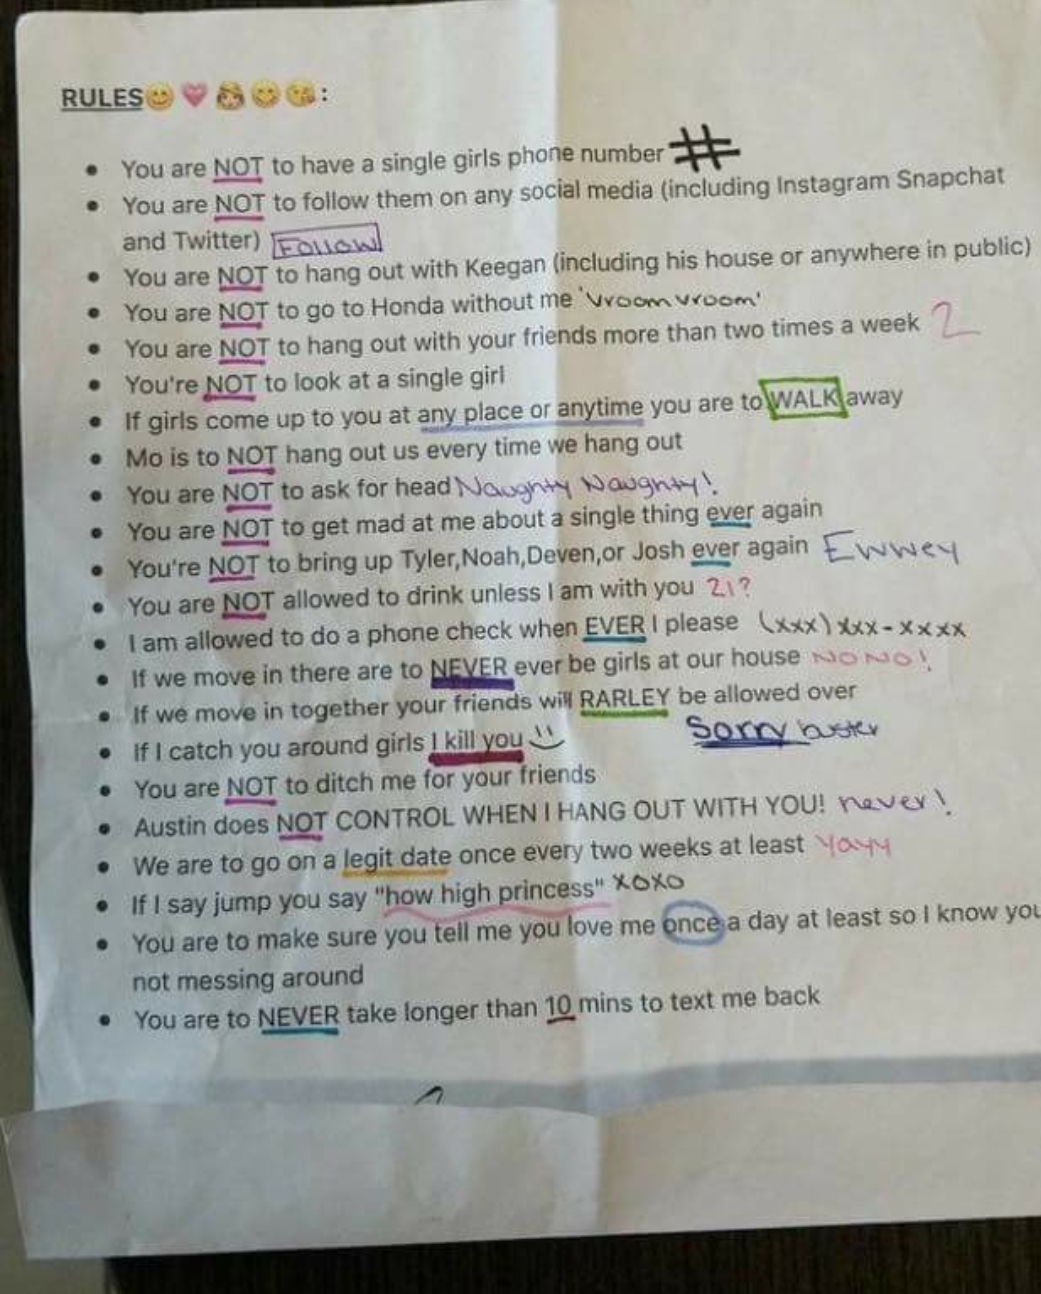 RULES😊💗👸😋😘:
• You are NOT to have a single girls phone number #
• You are NOT to follow them on any social media (including Instagram Snapchat
and Twitter) Follow
• You are NOT to hang out with Keegan (including his house or anywhere in public)
• You are NOT to go to Honda without me 'vroom vroom'
• You are NOT to hang out with your friends more than two times a week 2
• You're NOT to look at a single girl
• If girls come up to you at any place or anytime you are to WALK away
• Mo is to NOT hang out us every time we hang out
• You are NOT to ask for head Naughty Naughty!
• You are NOT to get mad at me about a single thing ever again
• You're NOT to bring up Tyler,Noah,Deven,or Josh ever again Ewwey
• You are NOT allowed to drink unless I am with you 21?
• I am allowed to do a phone check when EVER I please (xxx) xxx-xxxx
• If we move in there are to NEVER ever be girls at our house NO NO!
• If we move in together your friends will RARLEY be allowed over
Sorry buster
• If I catch you around girls I kill you
• You are NOT to ditch me for your friends
• Austin does NOT CONTROL WHEN I HANG OUT WITH YOU! never!
• We are to go on a legit date once every two weeks at least Yayy
• If I say jump you say "how high princess" XOXO
• You are to make sure you tell me you love me once a day at least so I know you
not messing around
• You are to NEVER take longer than 10 mins to text me back